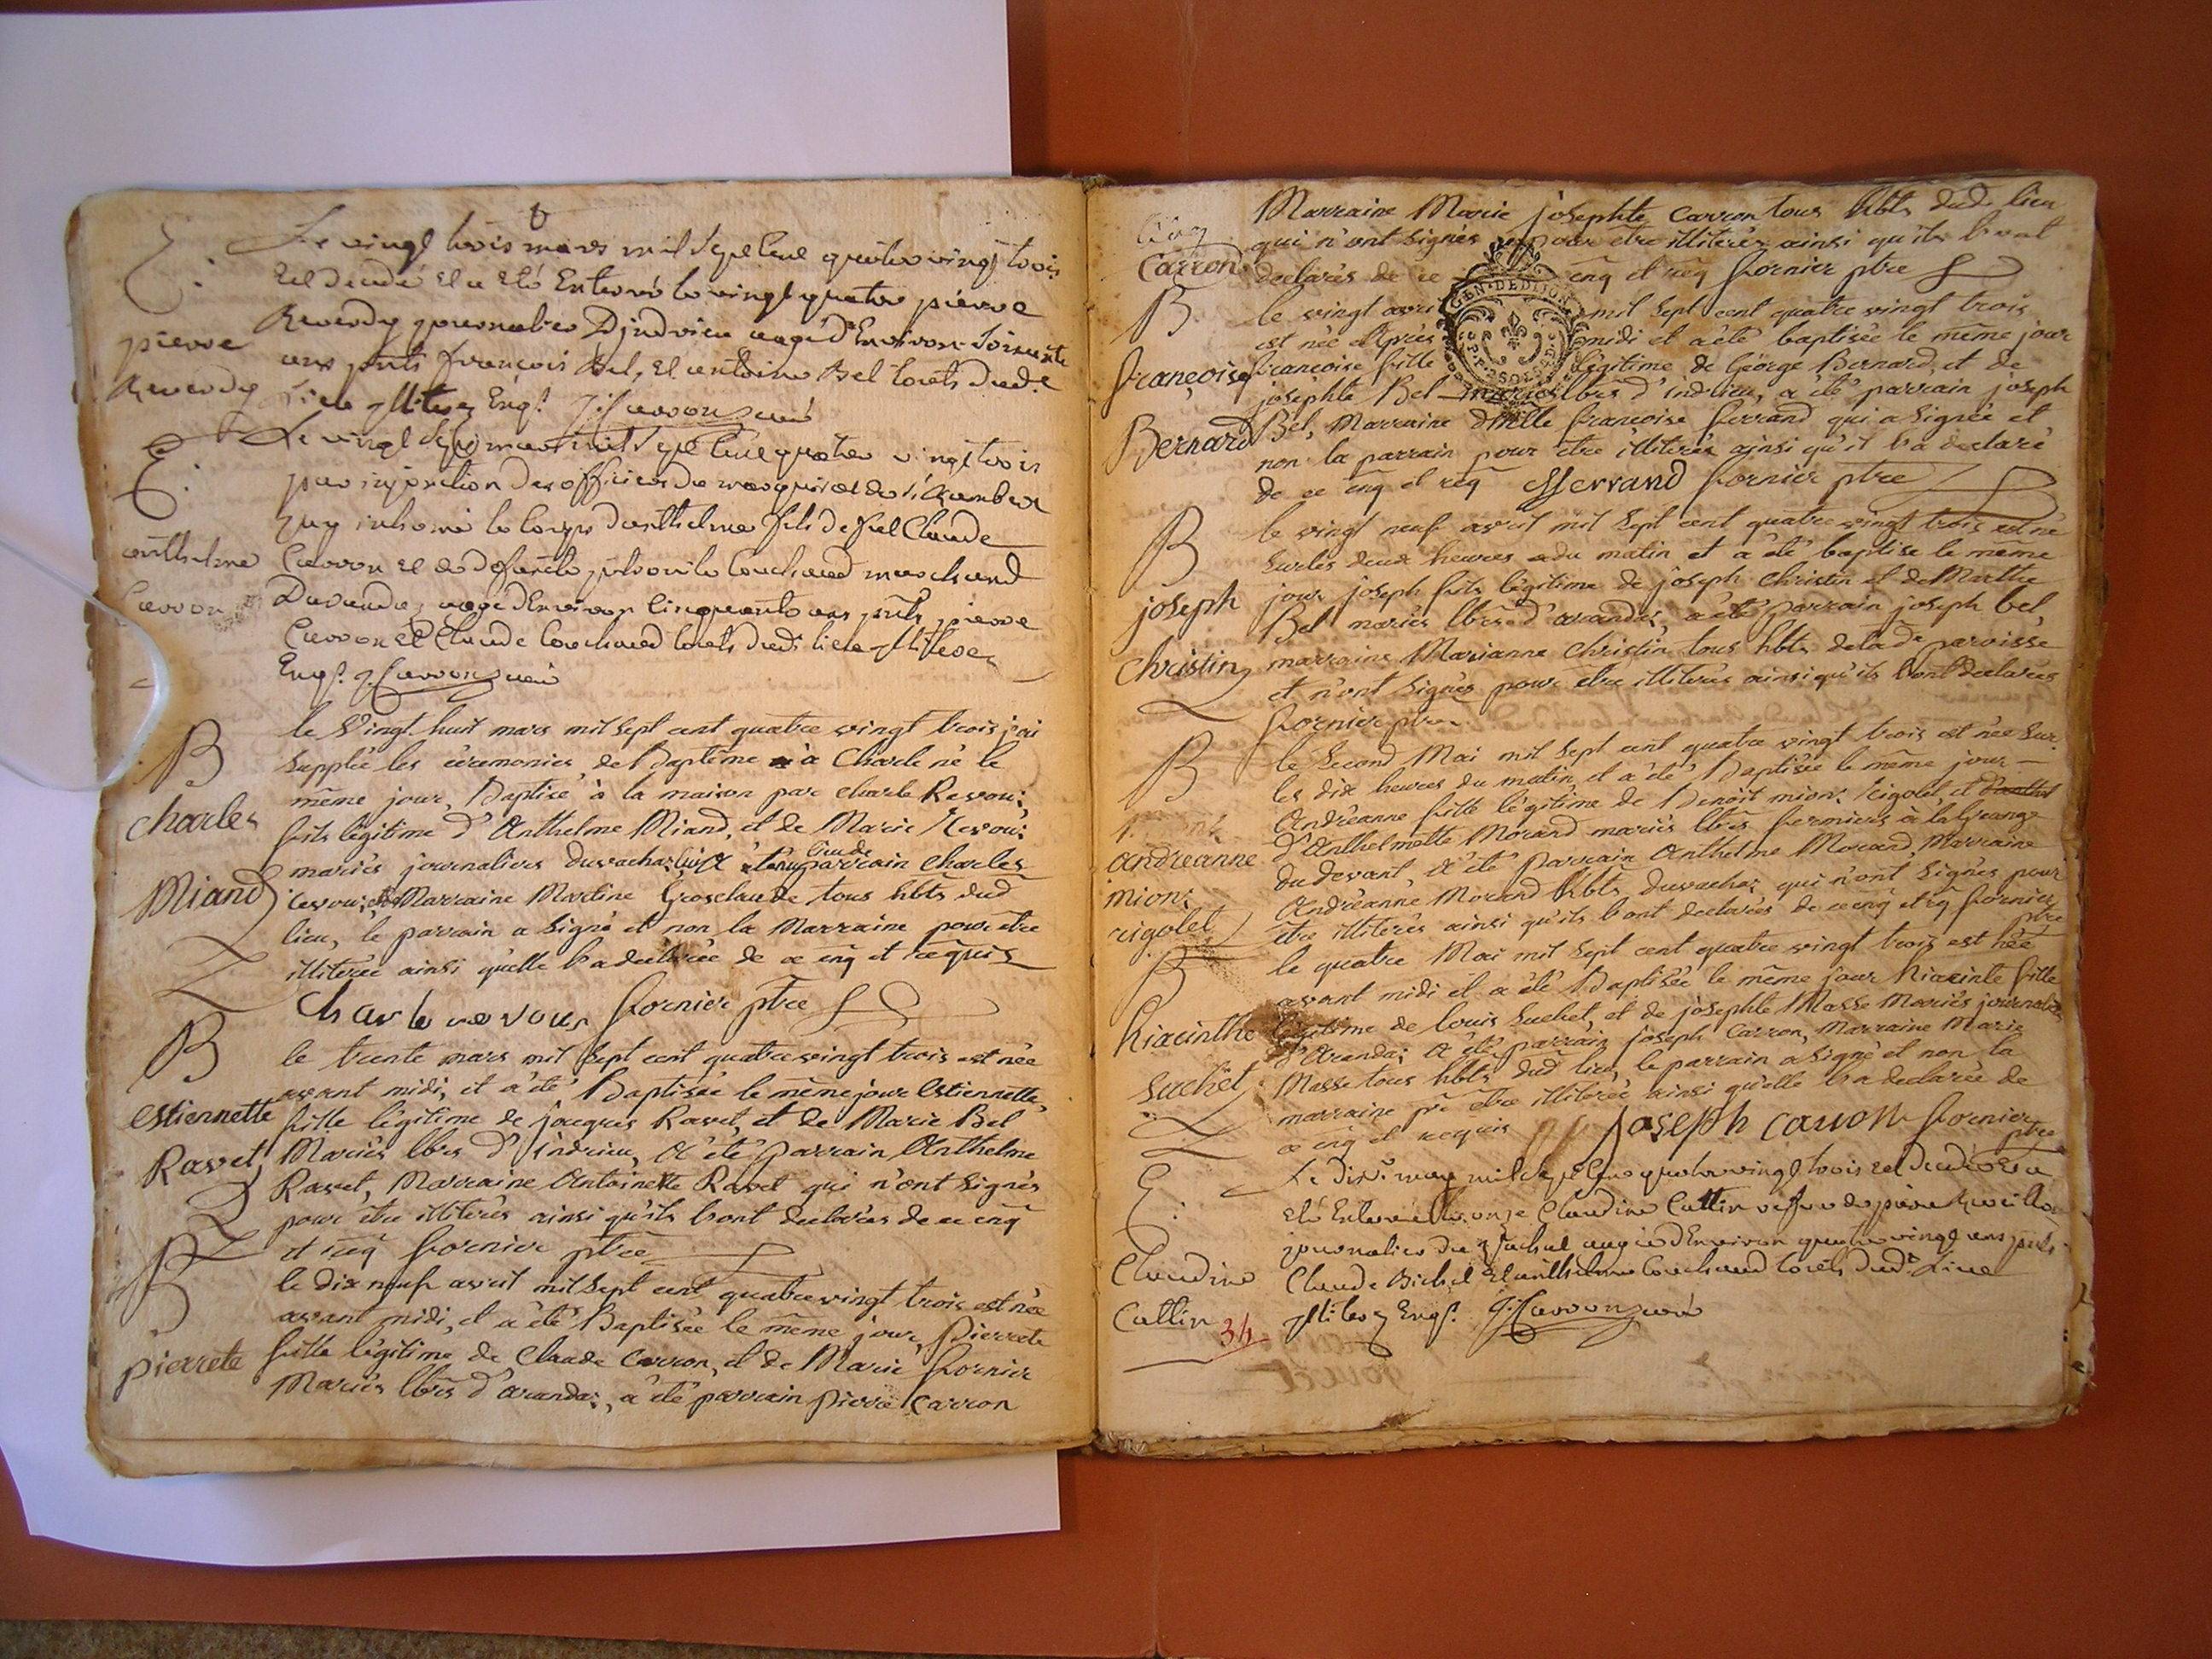 E.
Le vingt trois mars mil Sept Cent quatre vingt trois
Est decedé et a Eté Enterré le vingt quatre pierre
Reverdy journalier Dindrieu agé d'Environ Soixante
ans pnts françois Bel, et antoine Bel Dud.
Lieu illiterez Enqs. J: Carron curé
pierre
Reverdy
E.
Le vingt Sept mars mil Sept Cent quatre vingt trois
par injonction des officiers du marquisat de St Rambert
jay inhumé le Corps danthelme fils de feu Claude
Carron et de defuncte Couchoud marchand
Daranda, agé d'Environ Cinquante ans pnts pierre
Carron et Claude Couchoud dud. lieu illiterez
Enqs. J: Carron curé
anthelme
Carron
B
le vingt huit mars mil sept cent quatre vingt trois j'ai
supplée les cérémonies de Baptême à Charle né le
même jour, Baptisé à la maison par charle Revoux
fils légitime d'Anthelme Miand, et de Marie Revoux
mariés journaliers parrain Charles
Revoux, Marraine Martine Grosclaude tous hbts dud
lieu, le parrain a signé et non la Marraine pour être
illiterée ainsi qu'elle l'a déclarée de ce enq et requis
Charle revoux fornier ptre
charles
Miand
B
le trente mars mil sept cent quatre vingt trois est née
avant midi, et a été Baptisée le même jour Estiennette,
fille légitime de jacques Ravet, et de Marie Bel
Mariés lbrs d'indrieu, a été parrain Anthelme
Ravet, Marraine Antoinette Ravet qui n'ont signés
pour être illiterés ainsi qu'ils l'ont declarés de ce enq
et req fornier ptre
Estiennette
Ravet
B
le dix neuf avril mil sept cent quatre vingt trois est née
avant midi, et a été Baptisée le même jour, Pierrete
fille légitime de Claude Carron, et de Marie fornier
Mariés lbrs d'aranda, a été parrain pierre Carron
pierrete
Marraine Marie josephte Carron tous hbts dud. lieu
qui n'ont signés pour être illiterés ainsi qu'ils l'ont
declarés de ce enq et req fornier ptre
cinq
Carron
GEN. DE DIJON
B
le vingt avril mil sept cent quatre vingt trois
est née après midi et a été baptisée le même jour
francoise fille légitime de George Bernard, et de
josephte Bel mariés lbrs d'indrieu, a été parrain joseph
Bel, Marraine dmlle françoise ferrand qui a signée et
non la parrain pour être illiterés ainsi qu'il l'a declaré
de ce enq et req fferrand fornier ptre
françoise
Bernard
B
le vingt neuf avril mil sept cent quatre vingt trois est né
sur les deux heures du matin et a été baptisé le même
jour joseph fils légitime de joseph Christin et de Marthe
Bel mariés lbrs d'aranda, a été parrain joseph bel,
marraine Marianne Christin tous hbts de lad. paroisse
et n'ont signés pour être illiterés ainsi qu'ils l'ont declarés
fornier ptre
joseph
christin
B
le second Mai mil sept cent quatre vingt trois est née sur
les dix heures du matin, et a été Baptisée le même jour
Andréanne fille légitime de Benoit mion: rigolet, et
d'Anthelmette Morand mariés lbrs fermiers à la Grange
du devant, a été parrain Anthelme Morand, Marraine
Andréanne Morand hbts qui n'ont signés pour
être illiterés ainsi qu'ils l'ont declarés de ce enq et rq fornier
ptre
andreanne
mion:
rigolet
B
le quatre Mai mil sept cent quatre vingt trois est née
avant midi et a été Baptisée le même jour hiacinte fille
légitime de louis Suchet, et de josephte Masse Mariés journaliers
d'Aranda; a été parrain joseph Carron, Marraine Marie
Masse tous hbts dud lieu, le parrain a signé et non la
marraine pr être illiterée ainsi qu'elle l'a declarée de
ce enq et requis joseph carron fornier
ptre
hiacinthe
Suchet
E.
Le Dix: may mil Sept Cent quatre vingt trois est decedée et a
Eté Enterrée le onze Claudine Cattin vefve de pierre
journalier agée d'Environ quatre vingt ans pnts
Claude et anthelme Couchoud dud. Lieu
illiterez Enqs. J: Carron curé
Claudine
Cattin
34